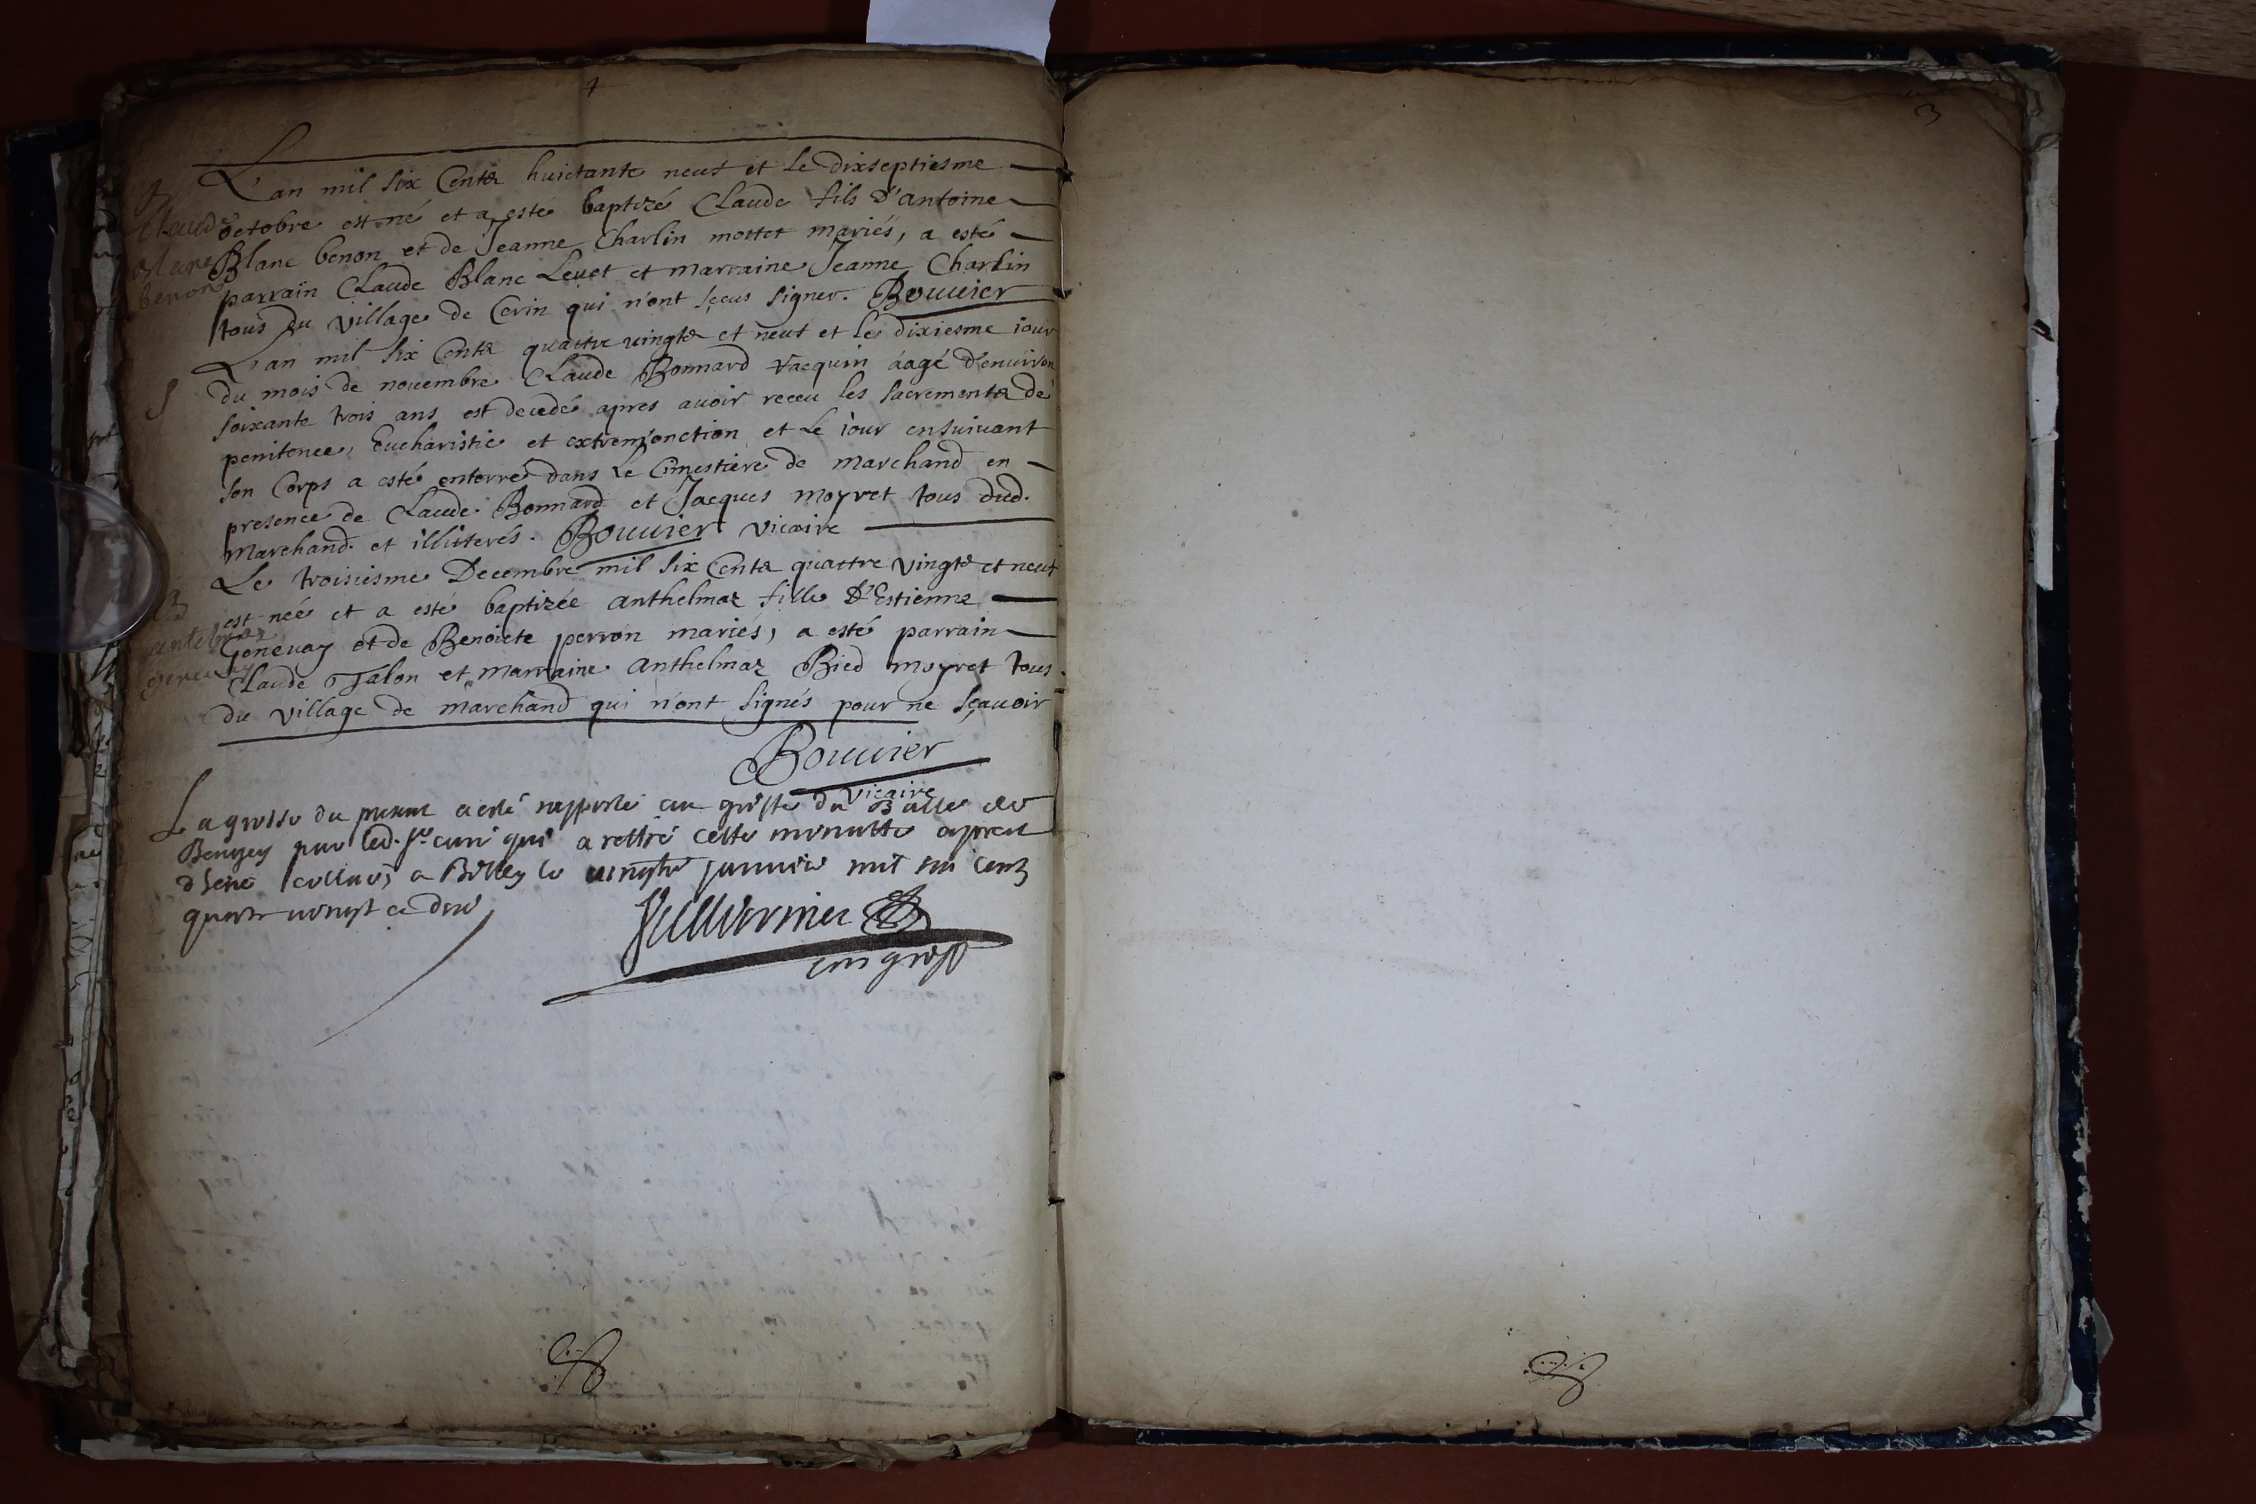 L'an mil six Cents huictante neuf et le dixseptiesme
octobre est né et a esté baptizé Claude fils d'Antoine
Blanc benon et de Jeanne Charlin mottet mariés, a esté
parrain Claude Blanc Levet et marraine Jeanne Charlin
tous du village de Cerin qui n'ont sçeus signer. Bouuier
B
Claude
blanc
benon
L'an mil six Cents quattre uingts et neuf et le dixiesme iour
du mois de nouembre Claude Bonnard vacquin áagé d'enuiron
soixante trois ans est decedé apres auoir receu les sacrements de
penitence, Eucharistie et extremonction et le iour ensuiuant
son Corps a esté enterré dans le Cimestiere de marchand en
presence de Claude Bonnard et Jacques moyret tous dud.
Marchand et illiterés. Bouuier vicaire
S
Le troisiesme Decembre mil six Cents quattre vingts et neuf
est née et a esté baptizée anthelmaz fille d'Estienne
Geneuay et de Benoiete perron mariés, a esté parrain
Claude Talon et marraine anthelmaz Bied moyret tous
du village de marchand qui n'ont signés pour ne sçauoir
B
Bouuier
vicaire
La grosse du present a esté rapporté au greffe du Bailla de
Beugey par led. Sr curé qui a rettiré cette minutte apres
a Belley le uingt janvier mil six cent
quatre uingt et dix
com greff
3